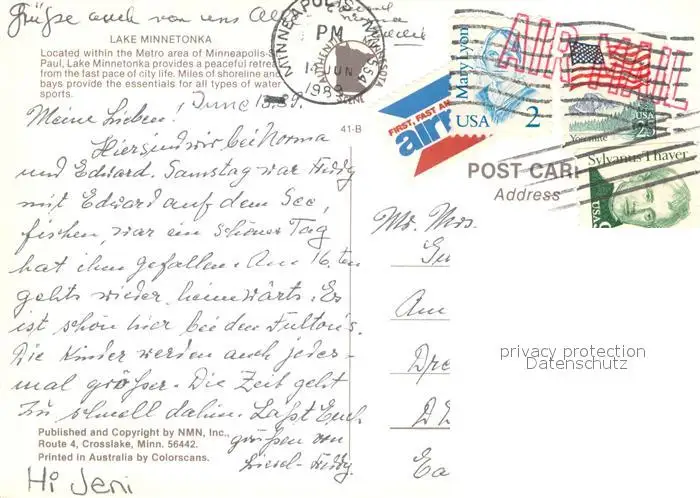 Grüße auch von uns
LAKE MINNETONKA
Located within the Metro area of Minneapolis-S
Paul, Lake Minnetonka provides a peaceful retrea
from the fast pace of city life. Miles of shoreline and
bays provide the essentials for all types of water
sports.
MINNEAPOLIS
PM
14 JUN
1989
41-B
FIRST, FAST AN
air
Mary Lyon
USA 2
AIR MAIL
USA
25
Yosemite
Sylvanus Thaver
USA
POST CAR
Address
June 1989.
Meine Lieben!
Hier sind wir bei Norma
und Edward. Samstag war Freddy
mit Edward auf dem See,
fischen, war ein schöner Tag
hat ihm gefallen. Am 16. ten
gehts wieder heimwärts. Es
ist schön hier bei den Fulton's.
Die Kinder werden auch jedes-
mal größer. Die Zeit geht
zu schnell dahin. Laßt Euch
grüßen von
Liesel-Freddy.
Published and Copyright by NMN, Inc.,
Route 4, Crosslake, Minn. 56442.
Printed in Australia by Colorscans.
Hi Jeni
Mr. Mrs.
Gu
Am
Dre
Ea
privacy protection
Datenschutz